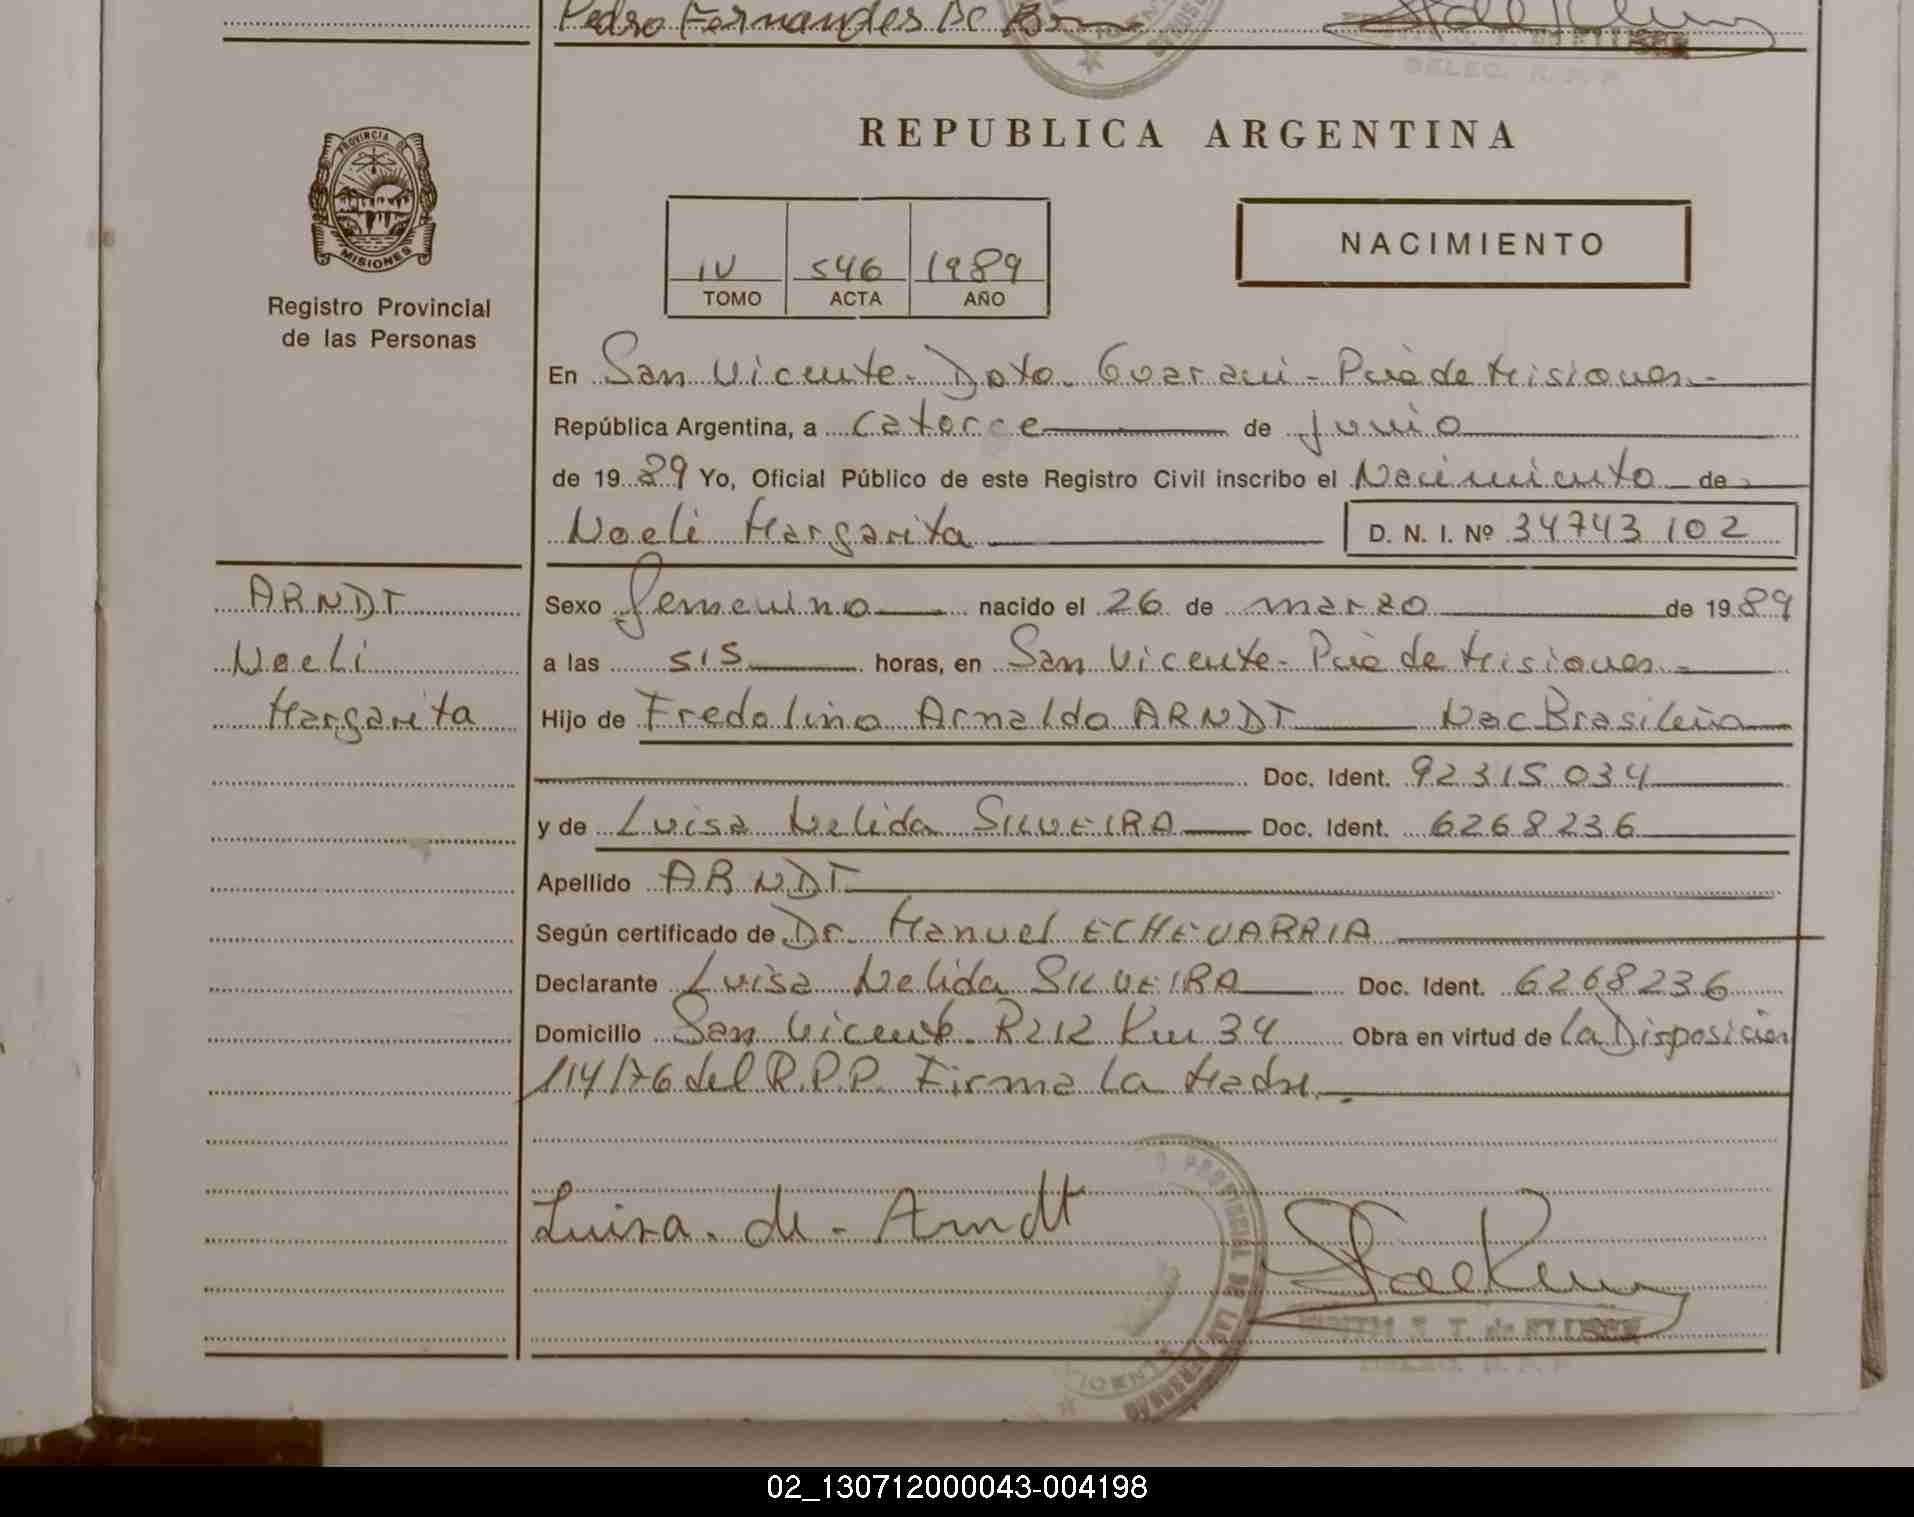 Pedro Fernandes De
DELEG. R. P. P.
REPUBLICA ARGENTINA
PROVINCIA DE
MISIONES
Registro Provincial
de las Personas
IV 546 1989
TOMO ACTA AÑO
NACIMIENTO
En San Vicente - Dpto. Guarani - Pcia de Misiones -
República Argentina, a catorce de junio
de 1989 Yo, Oficial Público de este Registro Civil inscribo el Nacimiento de
Noeli Margarita D. N. I. Nº 34743 102
ARNDT
Noeli
Margarita
Sexo femenino nacido el 26 de marzo de 1989
a las SIS horas, en San Vicente - Pcia de Misiones -
Hijo de Fredolino Arnaldo ARNDT Nac Brasileña
Doc. Ident. 92315034
y de Luisa Nelida SILVEIRA Doc. Ident. 6268236
Apellido ARNDT
Según certificado de Dr. Manuel ECHEVARRIA
Declarante Luisa Nelida SILVEIRA Doc. Ident. 6268236
Domicilio San Vicente - R212 Km 34 Obra en virtud de La Disposición
114/76 del R.P.P. Firma La Madre.
Luisa de Arndt
PROVINCIAL DE LAS PERSONAS
DELEG. R. P. P.
02_130712000043-004198